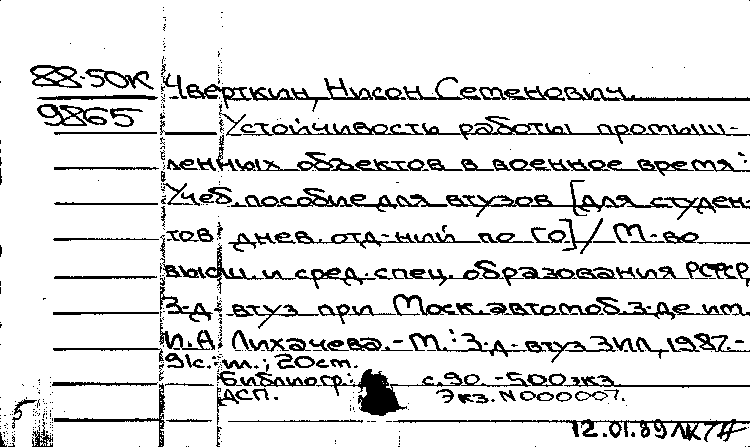 88-50К Чверткин, Нисон Семенович.
9865
Устойчивость работы промыш-
ленных объектов в военное время:
Учеб. пособие для втузов [для студен-
тов днев. отд-ний по ГО] / М-во
высш. и сред. спец. образования РСФСР,
З-д- втуз при Моск. автомоб. з-де им.
И.А. Лихачева. - М.: З-д- втуз ЗИЛ, 1987. -
91с. - т.; 20см.
Библиогр.: с.90. - 500экз.
ДСП. Экз. N000007.
5
12.01.89